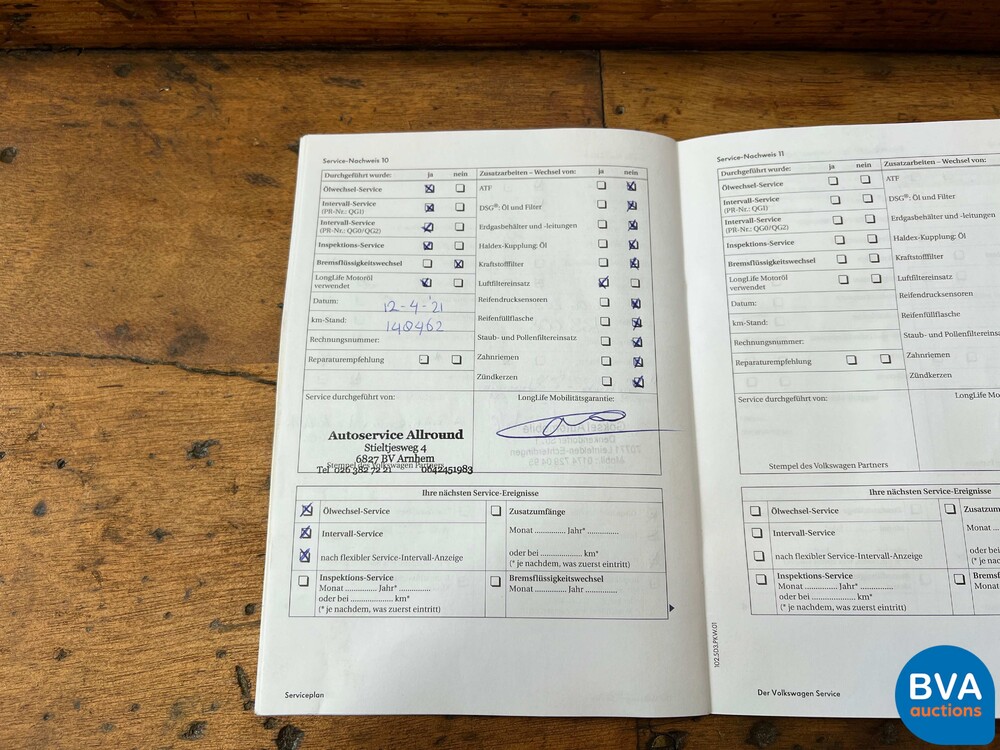 Service-Nachweis 10
Durchgeführt wurde: ja nein
Ölwechsel-Service
Intervall-Service
(PR-Nr.: QG1)
Intervall-Service
(PR-Nr.: QG0/QG2)
Inspektions-Service
Bremsflüssigkeitswechsel
LongLife Motoröl
verwendet
Datum: 12-4-'21
km-Stand: 140462
Rechnungsnummer:
Reparaturempfehlung
Zusatzarbeiten – Wechsel von: ja nein
ATF
DSG®: Öl und Filter
Erdgasbehälter und -leitungen
Haldex-Kupplung: Öl
Kraftstofffilter
Luftfiltereinsatz
Reifendrucksensoren
Reifenfüllflasche
Staub- und Pollenfiltereinsatz
Zahnriemen
Zündkerzen
Service durchgeführt von:
LongLife Mobilitätsgarantie:
Autoservice Allround
Stieltjesweg 4
6827 BV Arnhem
Stempel des Volkswagen Partners
Tel 026 382 72 21 0642451983
Ihre nächsten Service-Ereignisse
Ölwechsel-Service
Intervall-Service
nach flexibler Service-Intervall-Anzeige
Zusatzumfänge
Monat ............. Jahr* .............
oder bei ..................... km*
(* je nachdem, was zuerst eintritt)
Inspektions-Service
Monat ............. Jahr* .............
oder bei ..................... km*
(* je nachdem, was zuerst eintritt)
Bremsflüssigkeitswechsel
Monat ............. Jahr .............
Serviceplan
Service-Nachweis 11
Durchgeführt wurde: ja nein
Ölwechsel-Service
Intervall-Service
(PR-Nr.: QG1)
Intervall-Service
(PR-Nr.: QG0/QG2)
Inspektions-Service
Bremsflüssigkeitswechsel
LongLife Motoröl
verwendet
Datum:
km-Stand:
Rechnungsnummer:
Reparaturempfehlung
Zusatzarbeiten – Wechsel von:
ATF
DSG®: Öl und Filter
Erdgasbehälter und -leitungen
Haldex-Kupplung: Öl
Kraftstofffilter
Luftfiltereinsatz
Reifendrucksensoren
Reifenfüllflasche
Staub- und Pollenfiltereinsatz
Zahnriemen
Zündkerzen
Service durchgeführt von:
LongLife Mo
Stempel des Volkswagen Partners
Ihre nächsten Service-Ereignisse
Ölwechsel-Service
Intervall-Service
nach flexibler Service-Intervall-Anzeige
Zusatzum
Monat ...
oder bei
(* je nac
Inspektions-Service
Monat ............. Jahr* .............
oder bei ..................... km*
(* je nachdem, was zuerst eintritt)
Bremsf
Monat
102.5D3.PKW.01
Der Volkswagen Service
BVA
auctions